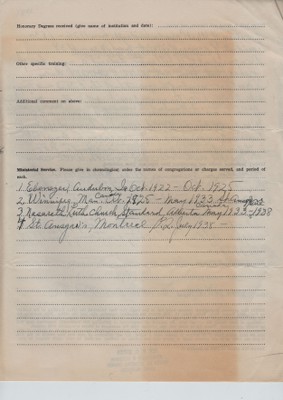 Honorary Degrees received (give name of institution and date):
Other specific training:
Additional comment on above:
Ministerial Service. Please give in chronological order the names of congregations or charges served, and period of
each.
1. Ebenezer Audubon, Ia Oct. 1922 – Oct. 1925
Canada
2. Winnipeg, Man. Oct. 1925 – May 1933
Canada
3. Nazareth Luth Church, Standard, Alberta May 1933 – 1938
4 St. Montreal July 1938